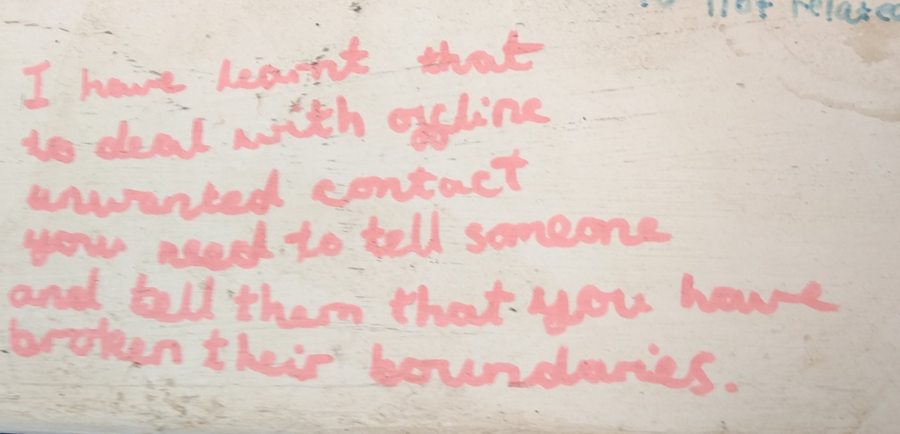 not related
I have learnt that
to deal with offline
unwanted contact
you need to tell someone
and tell them that you have
broken their boundaries.